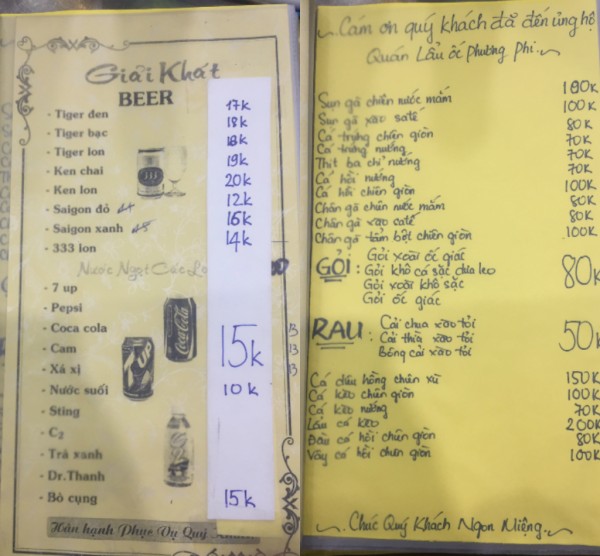 Giải Khát
BEER
- Tiger đen 17k
- Tiger bạc 18k
- Tiger lon 18k
- Ken chai 19k
- Ken lon 20k
- Saigon đỏ 12k
- Saigon xanh 16k
- 333 lon 14k
Nước Ngọt Các Lo
- 7 up
- Pepsi
- Coca cola
- Cam 15k
- Xá xị
- Nước suối 10k
- Sting
- C2
- Trà xanh
- Dr.Thanh
- Bò cụng 15k
Hân hạnh Phục Vụ Quý Khách
Cám ơn quý khách đã đến ủng hộ
Quán Lẩu ốc Phương Phi
Sụn gà chiên nước mắm 100K
Sụn gà xào satế 100K
Cá trứng chiên giòn 80K
Cá trứng nướng 70K
Thịt ba chỉ nướng 70K
Cá hồi nướng 70K
Cá hồi chiên giòn 100K
Chân gà chiên nước mắm 80K
Chân gà xào satế 80K
Chân gà tẩm bột chiên giòn 100K
Gỏi xoài ốc giác
GỎI : Gỏi khô cá sặc dưa leo 80K
Gỏi xoài khô sặc
Gỏi ốc giác
RAU : Cải chua xào tỏi 50K
Cải thìa xào tỏi
Bông cải xào tỏi
Cá dấu hồng chiên xù 150K
Cá kèo chiên giòn 100K
Cá kèo nướng 70K
Lẩu cá kèo 200K
Đầu cá hồi chiên giòn 80K
Vây cá hồi chiên giòn 100K
Chúc Quý Khách Ngon Miệng.